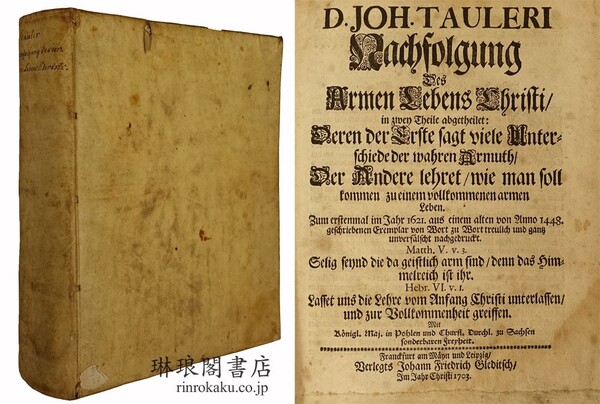 Tauler
Nachfolgung des armen
Lebens Christi.
D. JOH. TAULERI
Nachfolgung
Des
Armen Lebens Christi/
in zwey Theile abgetheilet:
Deren der Erste sagt viele Unter-
schiede der wahren Armuth/
Der Andere lehret/ wie man soll
kommen zu einem vollkommenen armen
Leben.
Zum erstenmal im Jahr 1621. aus einem alten von Anno 1448.
geschriebenen Exemplar von Wort zu Wort treulich und gantz
unverfälscht nachgedruckt.
Matth. V. v. 3.
Selig seynd die da geistlich arm sind/ denn das Him-
melreich ist ihr.
Hebr. VI. v. 1.
Lasset uns die Lehre vom Anfang Christi unterlassen/
und zur Vollkommenheit greiffen.
Mit
Königl. Maj. in Pohlen und Churfl. Durchl. zu Sachsen
sonderbaren Freyheit.
Franckfurt am Mäyn und Leipzig/
Verlegts Johann Friedrich Gleditsch/
Im Jahr Christi 1703.
琳琅閣書店
rinrokaku.co.jp